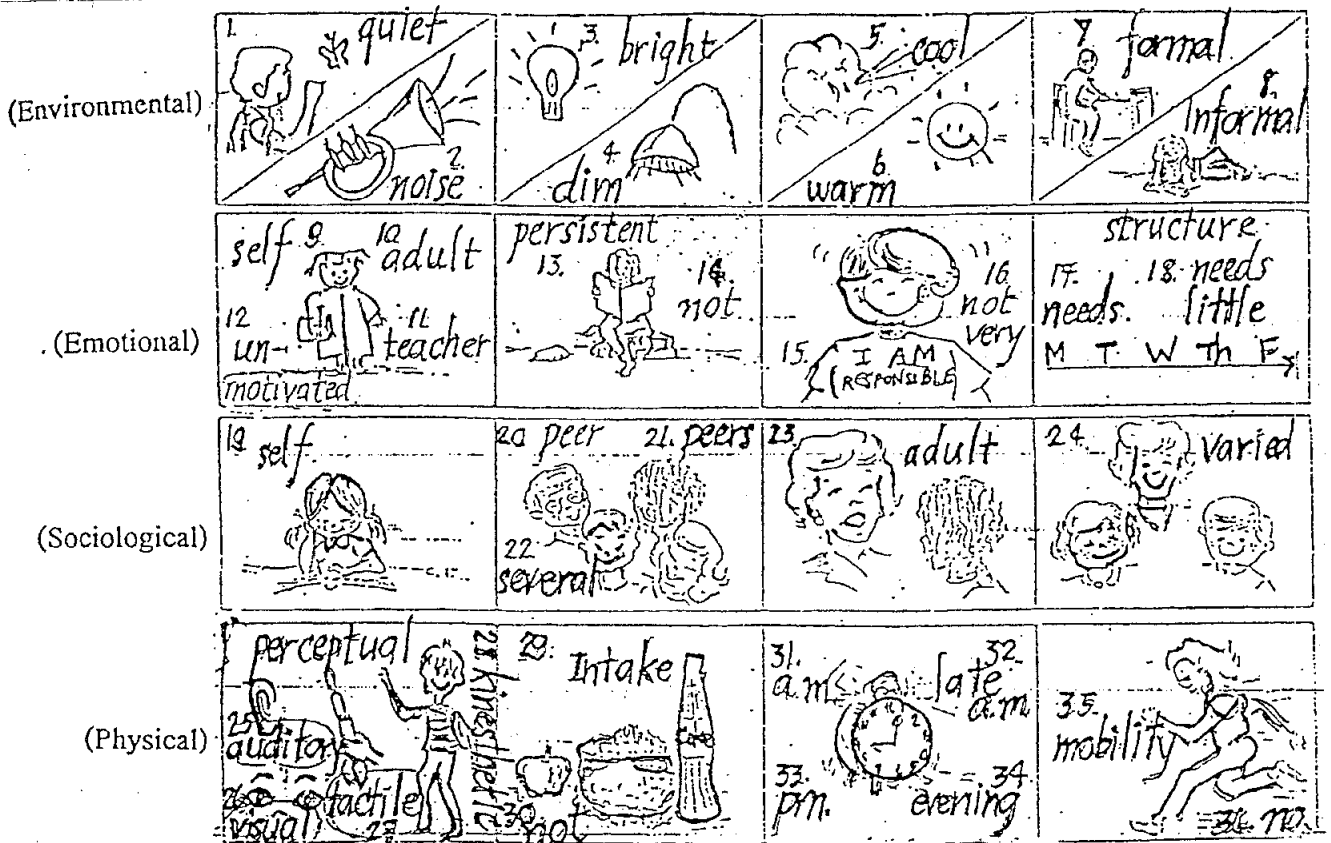 (Environmental)
1. quiet
2. noise
3. bright
4. dim
5. cool
6. warm
7. formal
8. Informal
(Emotional)
self 9. 10 adult
12 un- 11. teacher
motivated
persistent
13. 14. not
15. I AM
(RESPONSIBLE)
16. not
very
structure
17. needs. 18. needs
little
M T W Th F
(Sociological)
19. self
20 peer 21. peers
22 several
23. adult
24. varied
(Physical)
perceptual
25. auditory
26. visual
tactile 27
28. kinesthetic
29. Intake
30. not
31. a.m. 32. late
a.m.
33. p.m. 34. evening
35. mobility
36. no.